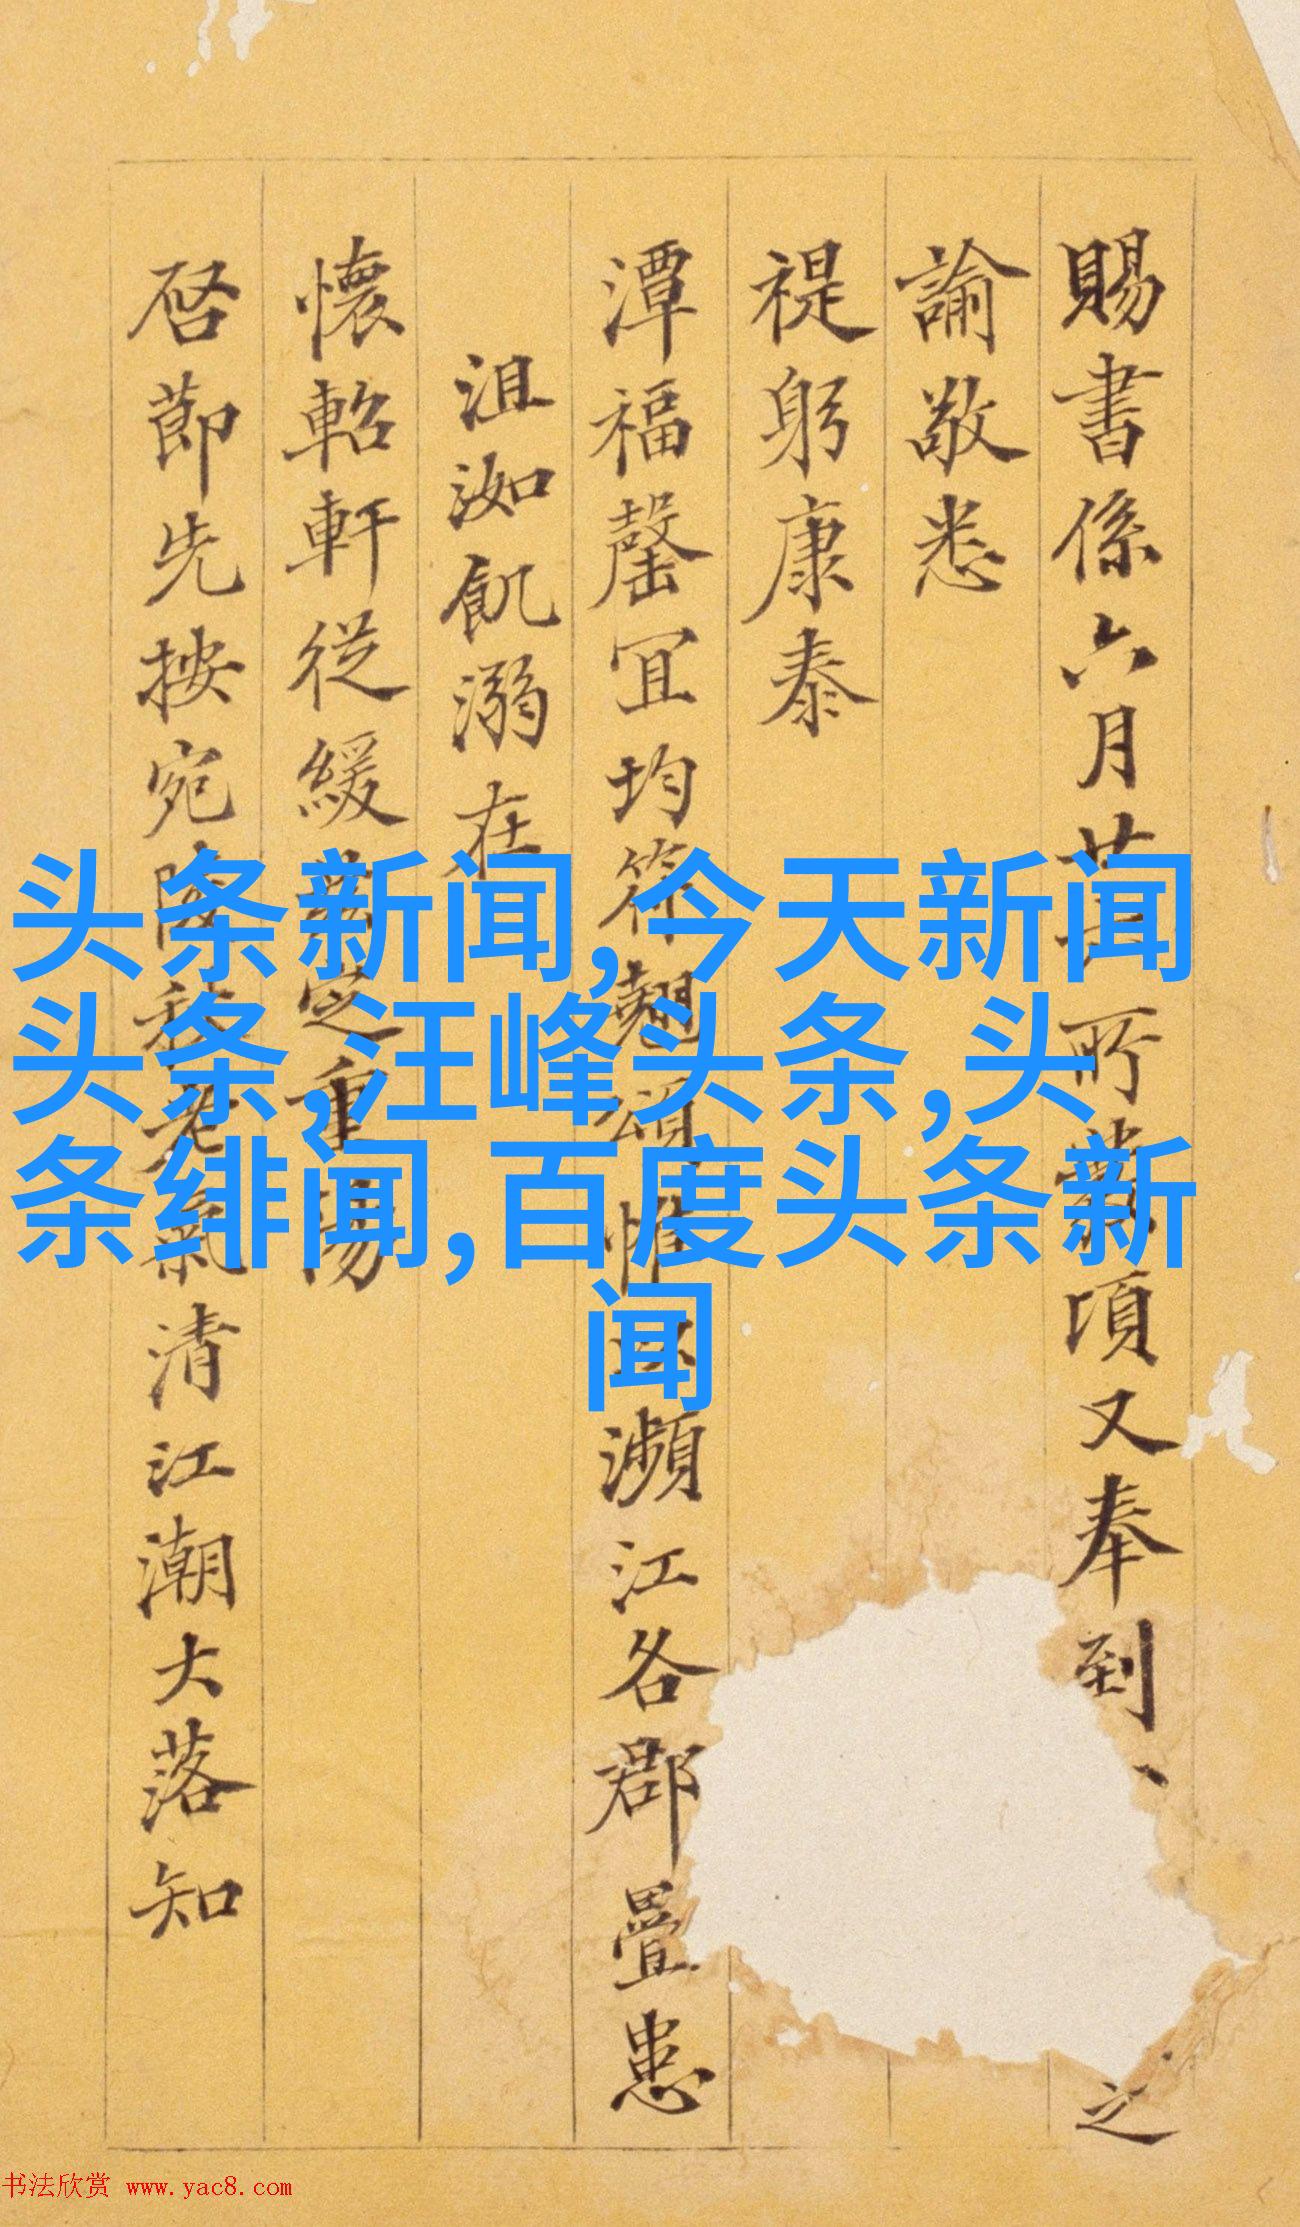 賜書係六月廿
所
項又奉到
之
諭敬悉
禔躬康泰
潭福罄宜均符翹頌惟
瀕江各郡疊患
沮洳飢溺在
懷軺軒從緩
定重陽
啓節先按宛陵秋老氣清江潮大落知
头条新闻,今天新闻
头条,汪峰头条,头
条绯闻,百度头条新
闻
书法欣赏 www.yac8.com